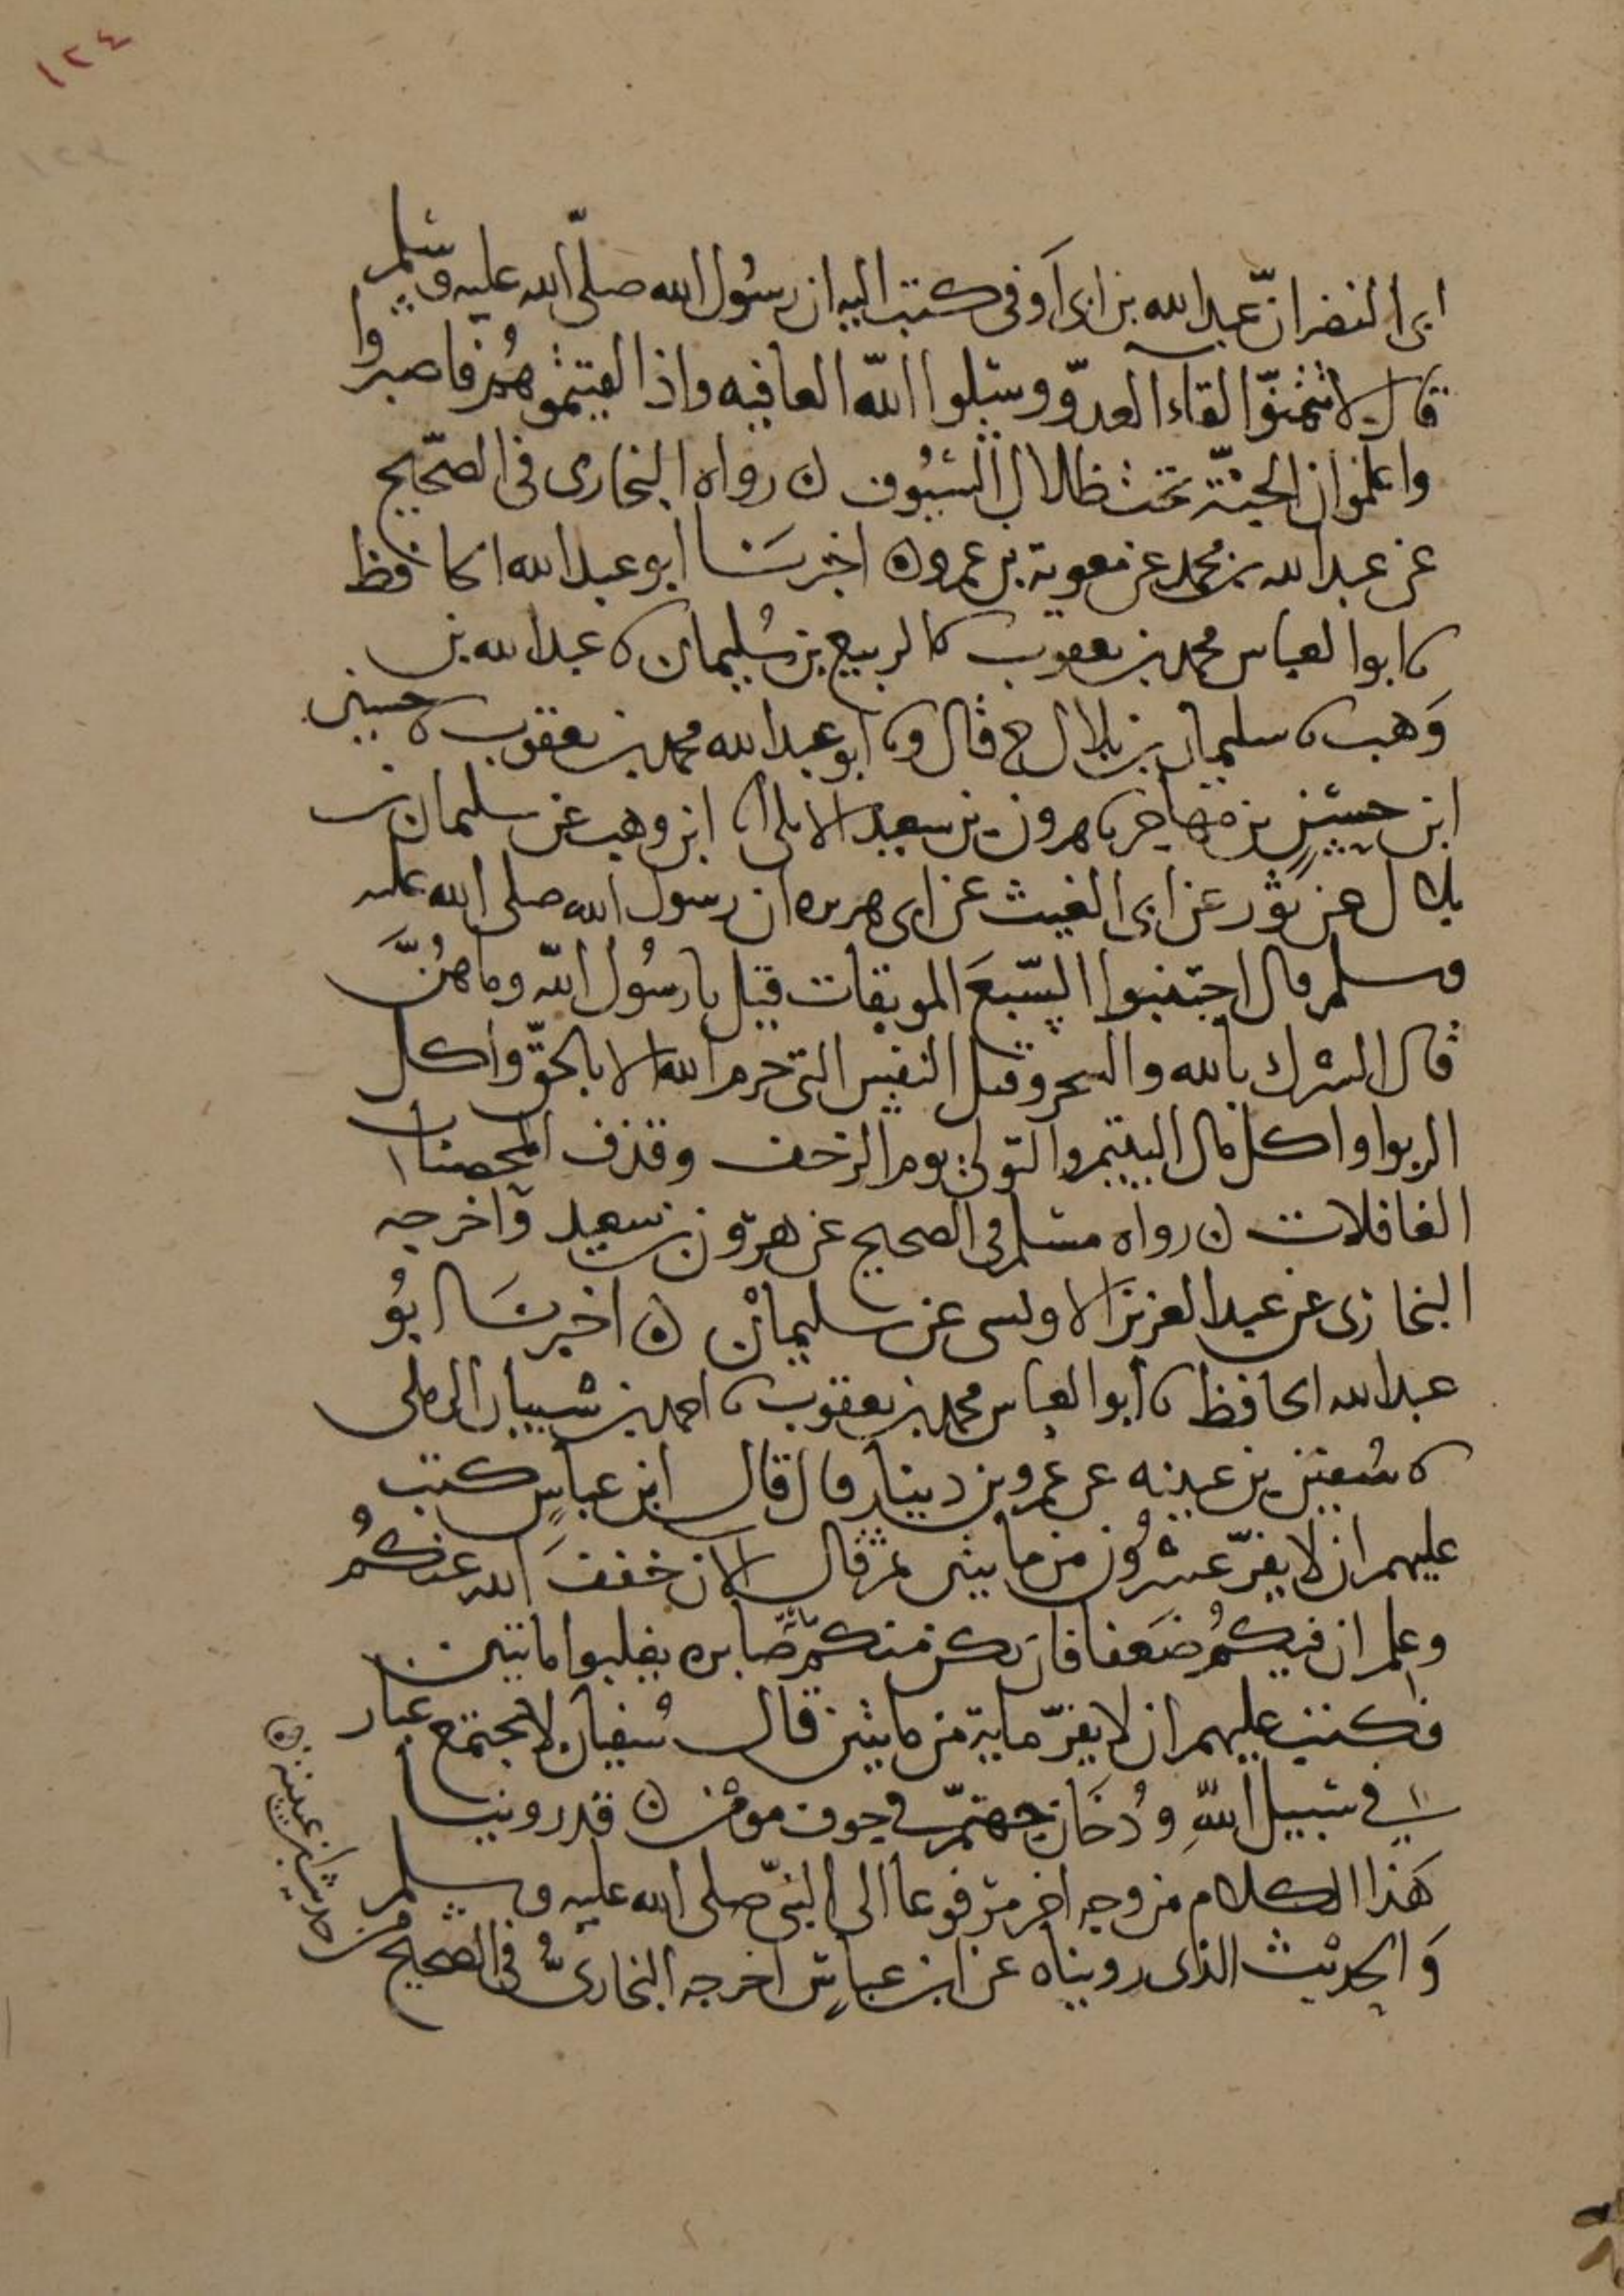 ١٢٤
ابى النضر انّ عبد الله بن ابى اَوفى كتب اليه ان رسُول الله صلّى الله عليه وسلم
قال لا تتمنّوا لقاء العدوّ وسلوا اللّه العافيه واذا لقيتموهُم فاصبروا
واعلموا ان الجنّة تحت ظلال السّيُوف ن رواه البخارى فى الصحّيح
عن عبد الله بن محمد عن معوية بن عمرو ن اخبرنَا ابو عبد الله الحافظ
نا ابوا لعباس محمد بن يعقوب نا لربيع بن سُليمان نا عبد الله بن
وَهب نا سليمان بن بلال ح قال ونا ابو عبد الله محمد بن يعقوب نا حسين
ابن حسينٍ بن مهاجر نا هرون بن سعيد الايلى نا ابن وهب عن سليمان بن
بلال عن ثور عن ابى الغيث عن ابى هريره ان رسول الله صلى الله عليه
وسلم قال اجتنبوا السّبعَ الموبقات قيل يا رسُول اللّه وما هُنَّ
قال الشرك بالله والسحر وقتل النفس التى حرم الله الا بالحقّ واكل
الربوا واكل مال اليتيم والتّولى يوم الزحف وقذف المحصنات
الغافلات ن رواه مسلم فى الصحيح عن هرون بن سعيد واخرجه
البخارى عن عبد العزيز الاويسى عن سليمان ن اخبرنَا ابُو
عبد الله الحافظ نا ابوا لعباس محمد بن يعقوب نا احمد بن شيبان الرملى
نا سُفين بن عيينه عن عمرو بن دينار قال قال ابن عباسٍ كتب
عليهم ان لا يفرّ عشرُون من مايتين ثم قال الان خففَ الله عنكُم
وعلم ان فيكُم ضَعفا فان يكن منكم مّاية صَابره يغلبوا مايتين
فكتب عليهم ان لا يفرّ مايةٌ من مايتين قال سُفيان لا يجتمع غبار
فى سَبيل اللّهِ ودُخَان جهنّم فى جوف مومن ن قد روينا
هَذا الكلام من وجهٍ اخر مرفوعا الى النبىّ صلى الله عليه وسلم
وَالحديث الذى رويناه عن ابن عباسٍ اخرجه البخارىُّ فى الصحيح من
حديث ابن عيينة ن